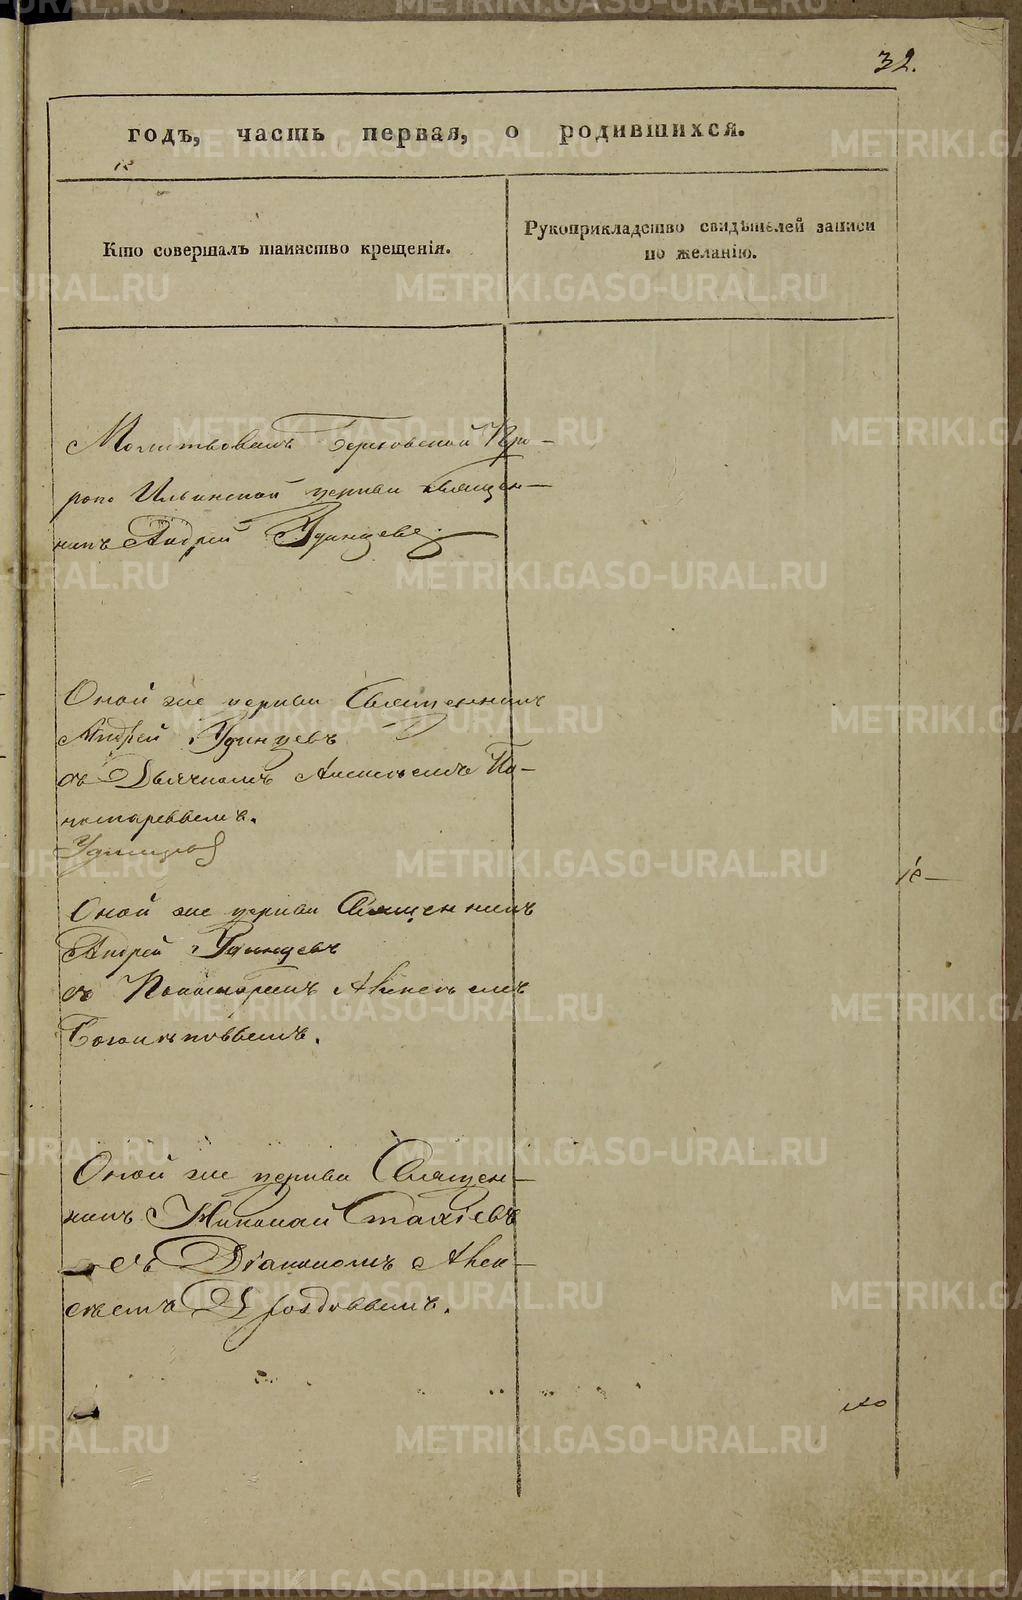 32.
годъ, часть первая, о родившихся.
Кто совершалъ таинство крещенія.
Рукоприкладство свидѣтелей записи
по желанію.
Молитвовалъ Про-
роко Ильинской церкви священ-
никъ Андрей Удинцевъ
Оной же церкви Священникъ
Андрей Удинцевъ
съ Дьячкомъ Алексѣемъ По-
номаревымъ.
Удинцевъ
Оной же церкви Священникъ
Андрей Удинцевъ
съ Пономаремъ Алексѣемъ
Оной же церкви Священ-
никъ Николай Стахіевъ
съ Діакономъ Алек-
сѣемъ
METRIKI.GASO-URAL.RU